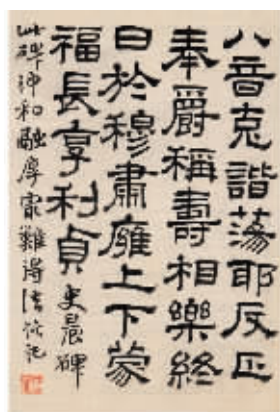 八音克諧蕩耶反正
奉爵稱壽相樂終
日於穆肅廱上下蒙
福長享利貞 史晨碑
此碑沖和融厚最難得法 記